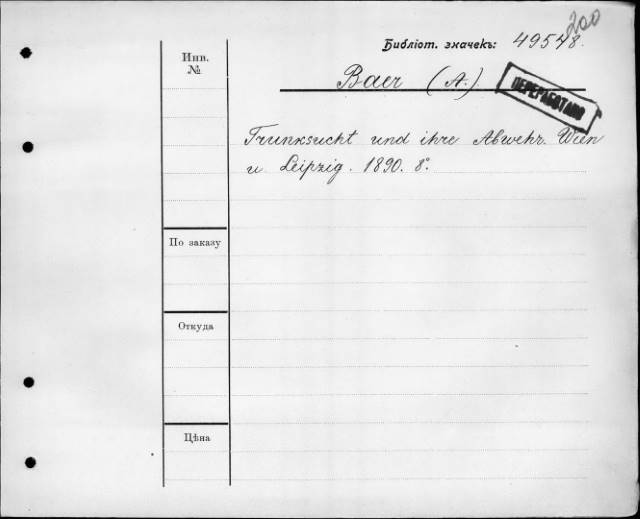 200
Библіот. значекъ: 49548.
Инв.
№
Baer (A.)
ПЕРЕРАБОТАНО
Trunksucht und ihre Abwehr. Wien
u Leipzig. 1890. 8°.
По заказу
Откуда
Цѣна